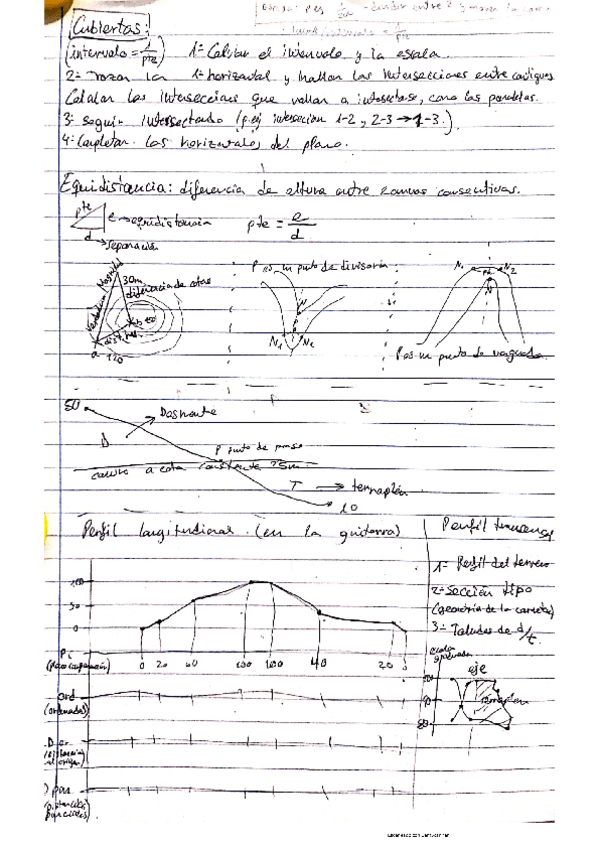 Cubiertas:
(intervalo = 1/pte) 1= Calcular el intervalo y la escala.
2= Trazar la 1= horizontal y hallar las intersecciones entre contiguas
Calcular las intersecciones que vallan a intersectarse, como las paralelas.
3= seguir intersectando (p.ej intersección 1-2, 2-3 → 1-3.)
4= Completar las horizontales del plano.
Equidistancia: diferencia de altura entre curvas consecutivas.
pte e → equidistancia pte = e/d
d → separación
P es un punto de divisoria
N1 N2
30m
diferencia de cotas
a
120
N1 N2
P es un punto de vaguada
50
Desmonte
D
P punto de paso
camino a cota constante 25m
T → terraplén
10
Perfil longitudinal. (en la guitarra)
Perfil transversal
1= Perfil del terreno
2= Sección tipo
(geometría de la carretera)
3= Taludes de d/t.
100
50
0
PC
(plano comparación)
0 20 60 100 100 40 20 0
Ord
(ordenadas)
D or.
(distancia al origen)
D par.
(distancias parciales)
eje
terraplén
90
80